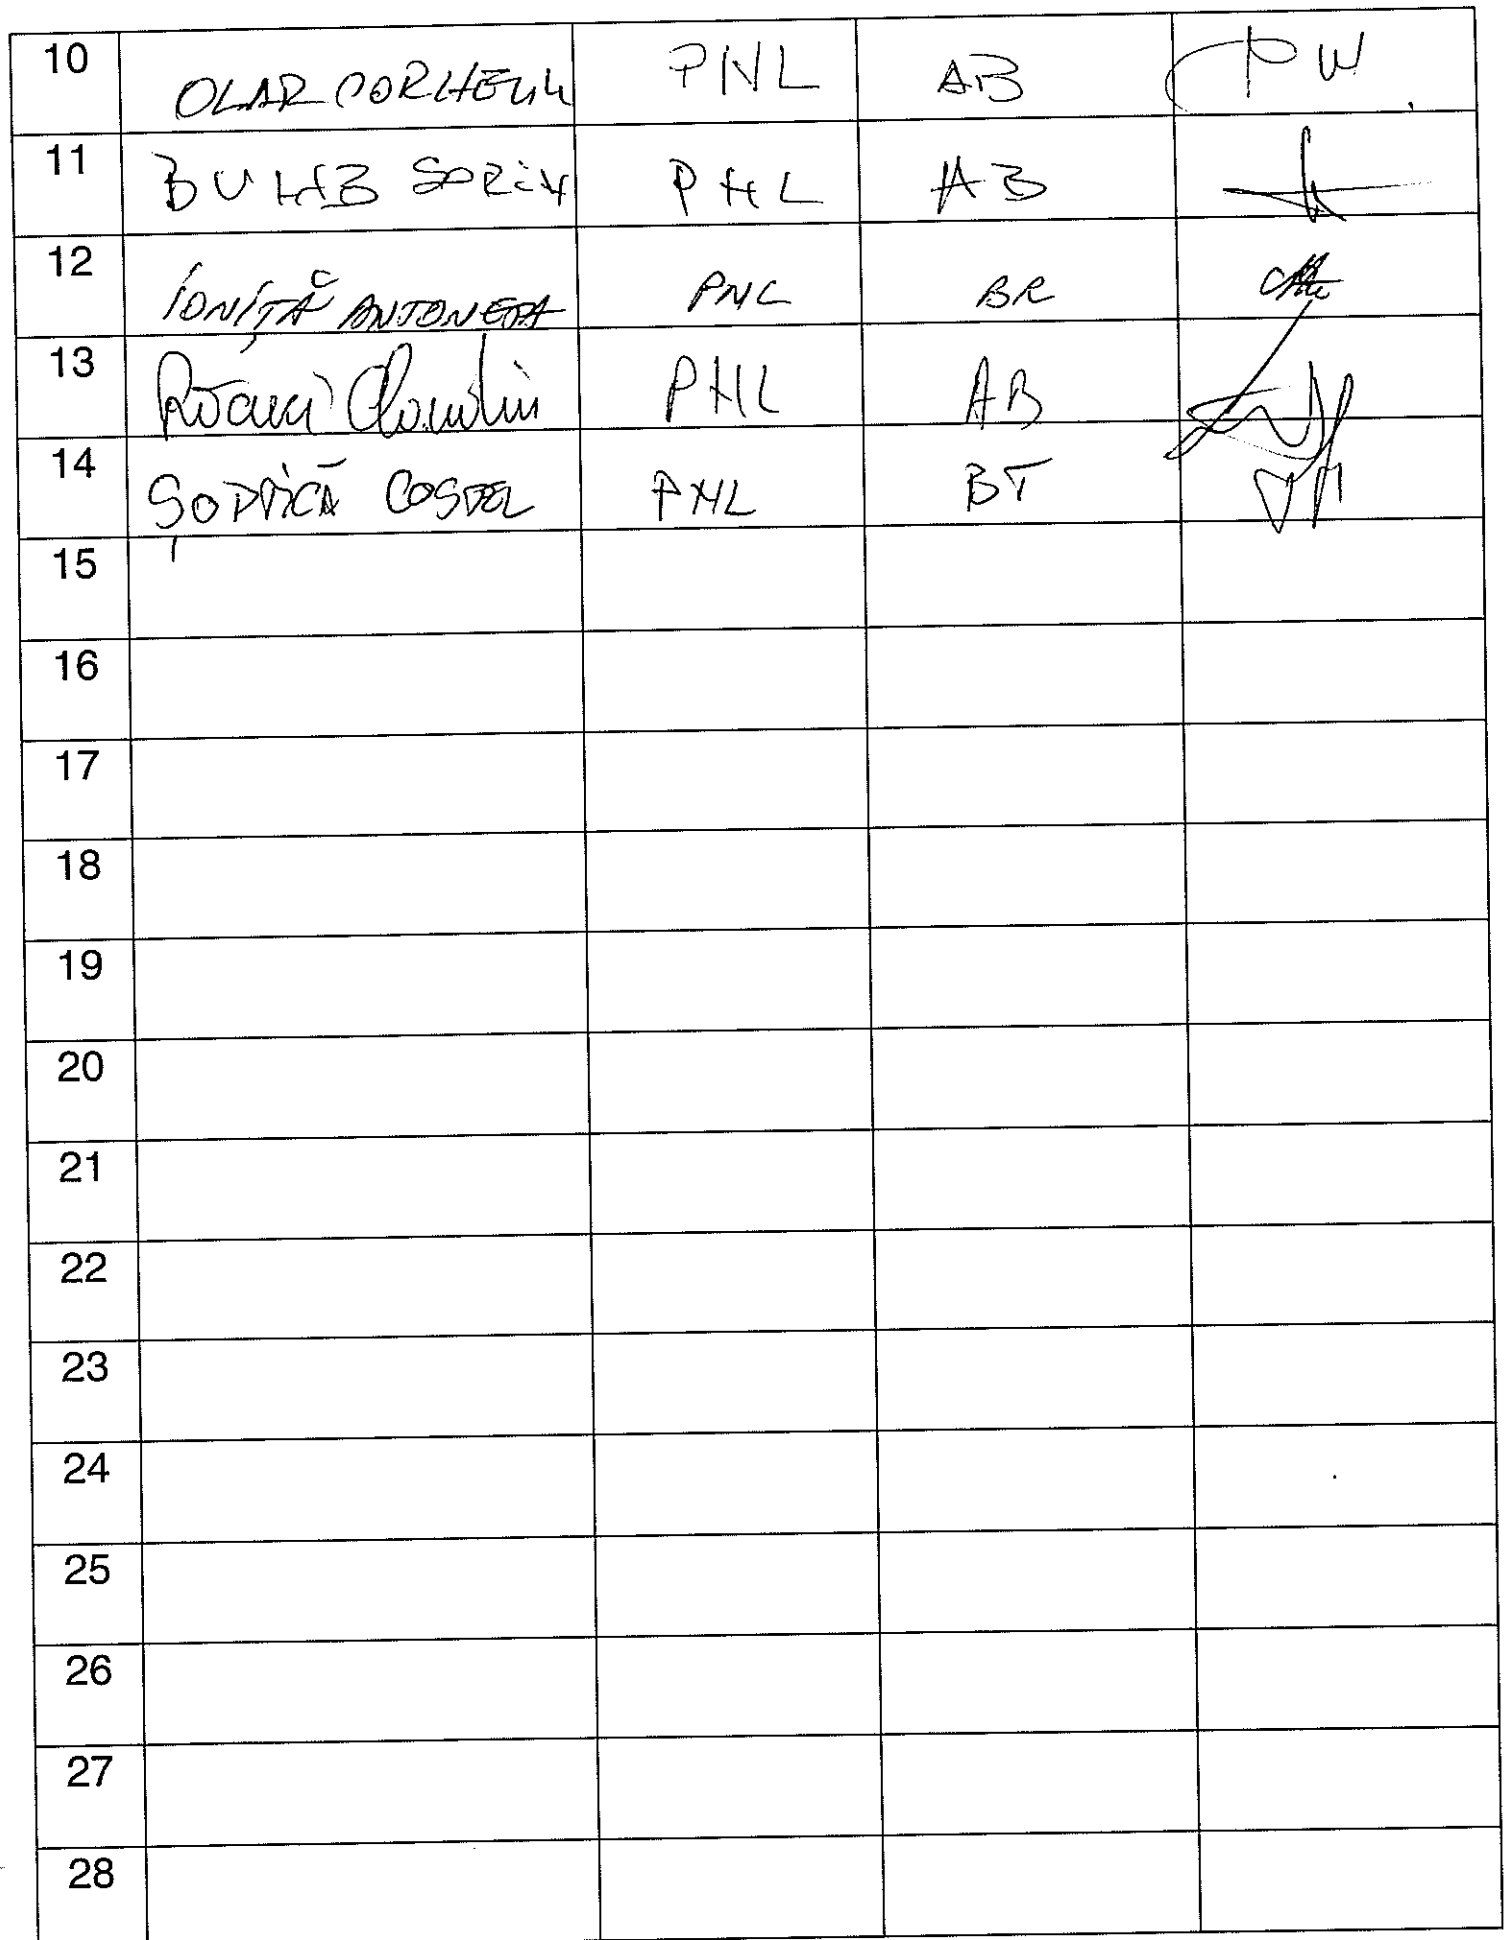 10 OLAR CORNELIU PNL AB
11 BUMB SORIN PNL AB
12 IONIȚĂ ANTONETA PNL BR
13 Răcuci Claudiu PNL AB
14 ȘOPTICĂ COSTEL PNL BT
15
16
17
18
19
20
21
22
23
24
25
26
27
28